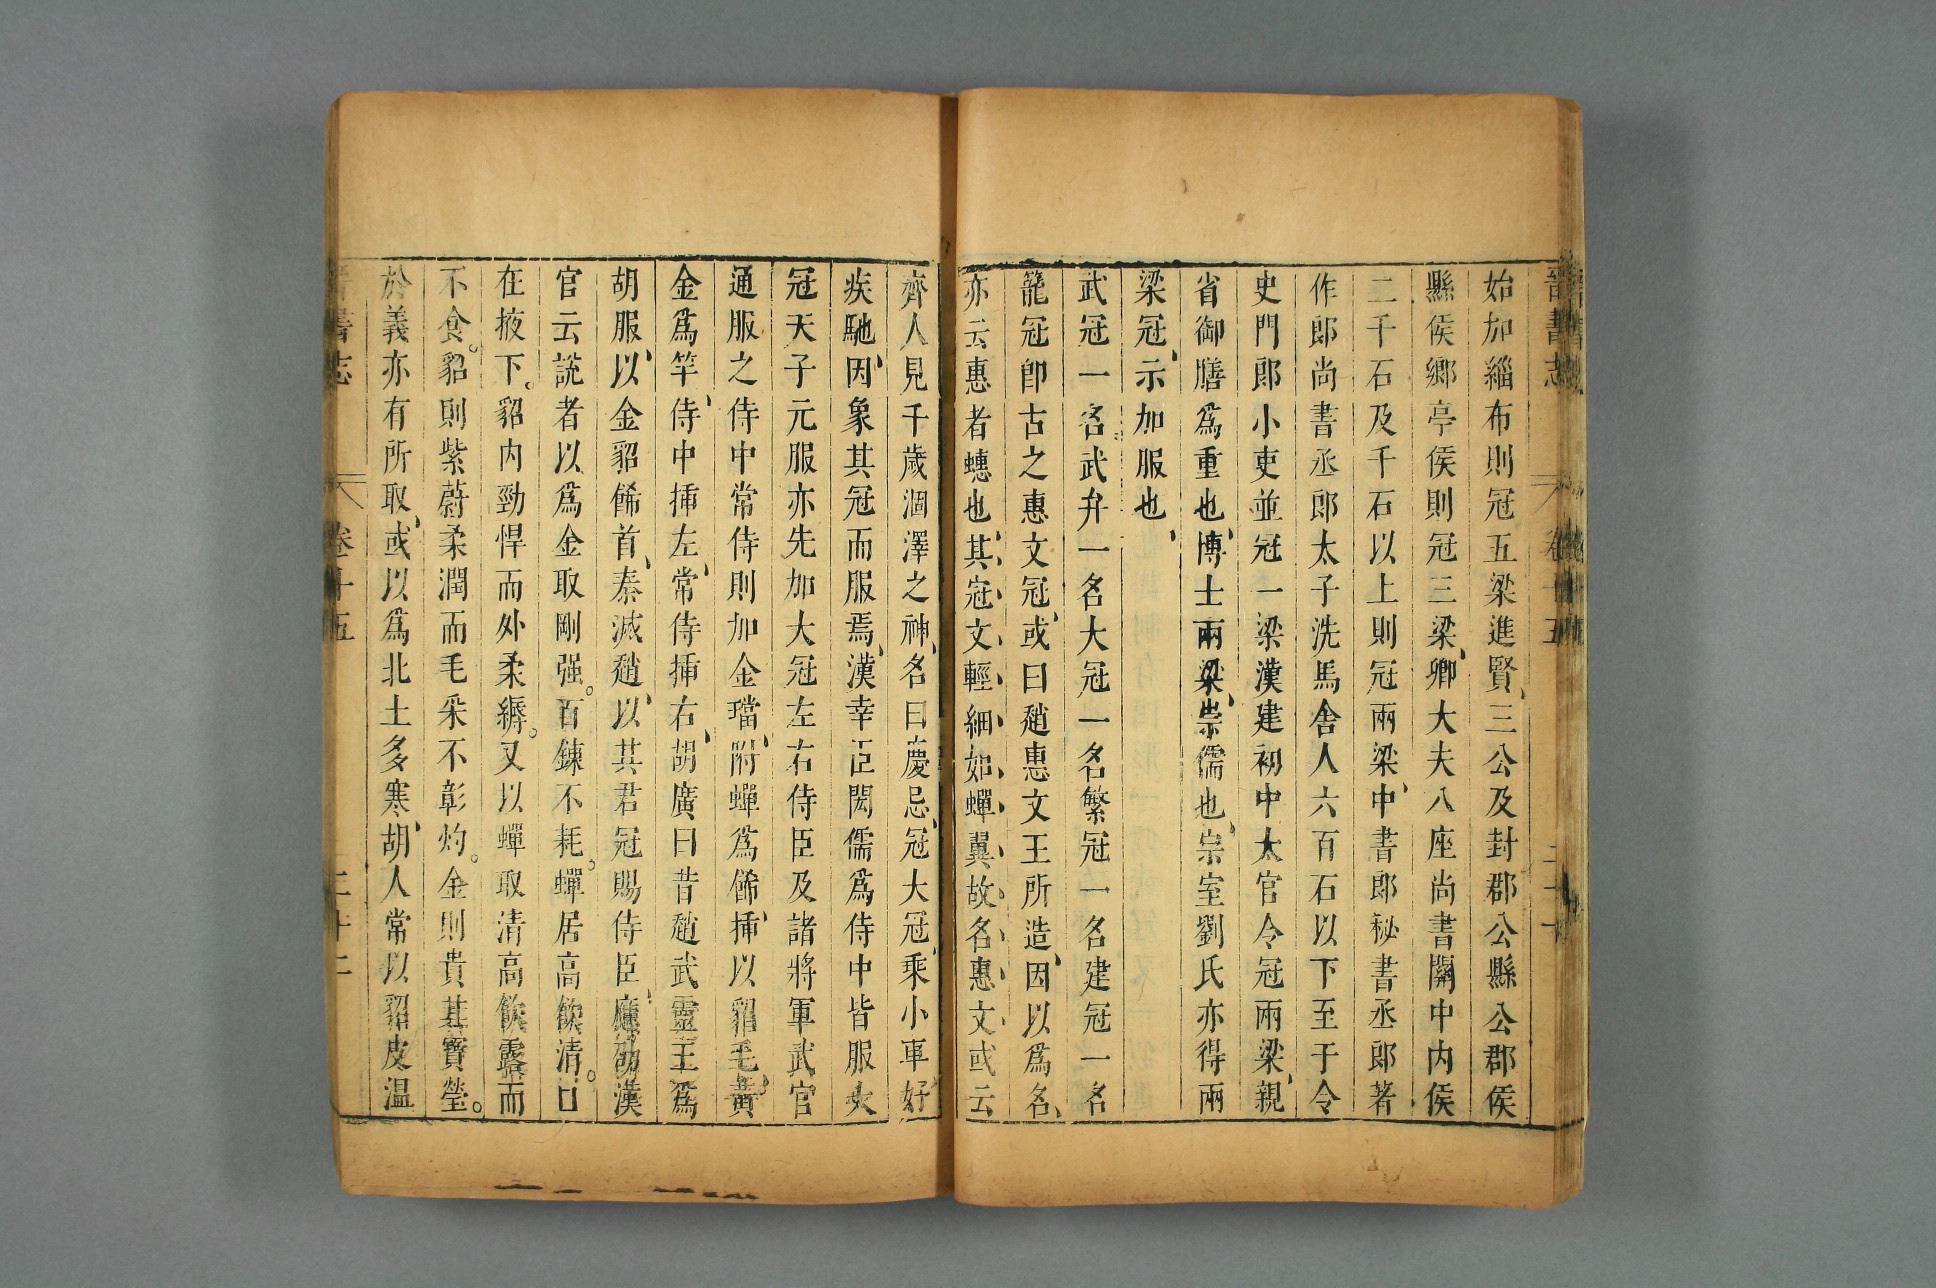 晉書志 卷十五
始加緇布則冠五梁進賢三公及封郡公縣公郡侯
縣侯鄉亭侯則冠三梁卿大夫八座尚書關中內侯
二千石及千石以上則冠兩梁中書郎秘書丞郎著
作郎尚書丞郎太子洗馬舍人六百石以下至于令
史門郎小吏並冠一梁漢建初中太官令冠兩梁親
省御膳爲重也博士兩梁崇儒也宗室劉氏亦得兩
梁冠示加服也
武冠一名武弁一名大冠一名繁冠一名建冠一名
籠冠卽古之惠文冠或曰趙惠文王所造因以爲名
亦云惠者蟪也其冠文輕細如蟬翼故名惠文或云
齊人見千歲涸澤之神名曰慶忌冠大冠乘小車好
疾馳因象其冠而服焉漢幸臣閎儒爲侍中皆服大
冠天子元服亦先加大冠左右侍臣及諸將軍武官
通服之侍中常侍則加金璫附蟬爲飾插以貂毛黃
金爲竿侍中插左常侍插右胡廣曰昔趙武靈王爲
胡服以金貂飾首秦滅趙以其君冠賜侍臣應劭漢
官云說者以爲金取剛强。百鍊不耗。蟬居高飲清。口
在掖下。貂內勁悍而外柔縟。又以蟬取清高飲露而
不食。貂則紫蔚柔潤而毛采不彰灼。金則貴其寶瑩。
於義亦有所取或以爲北土多寒胡人常以貂皮溫
晉書志 卷十五 二十二